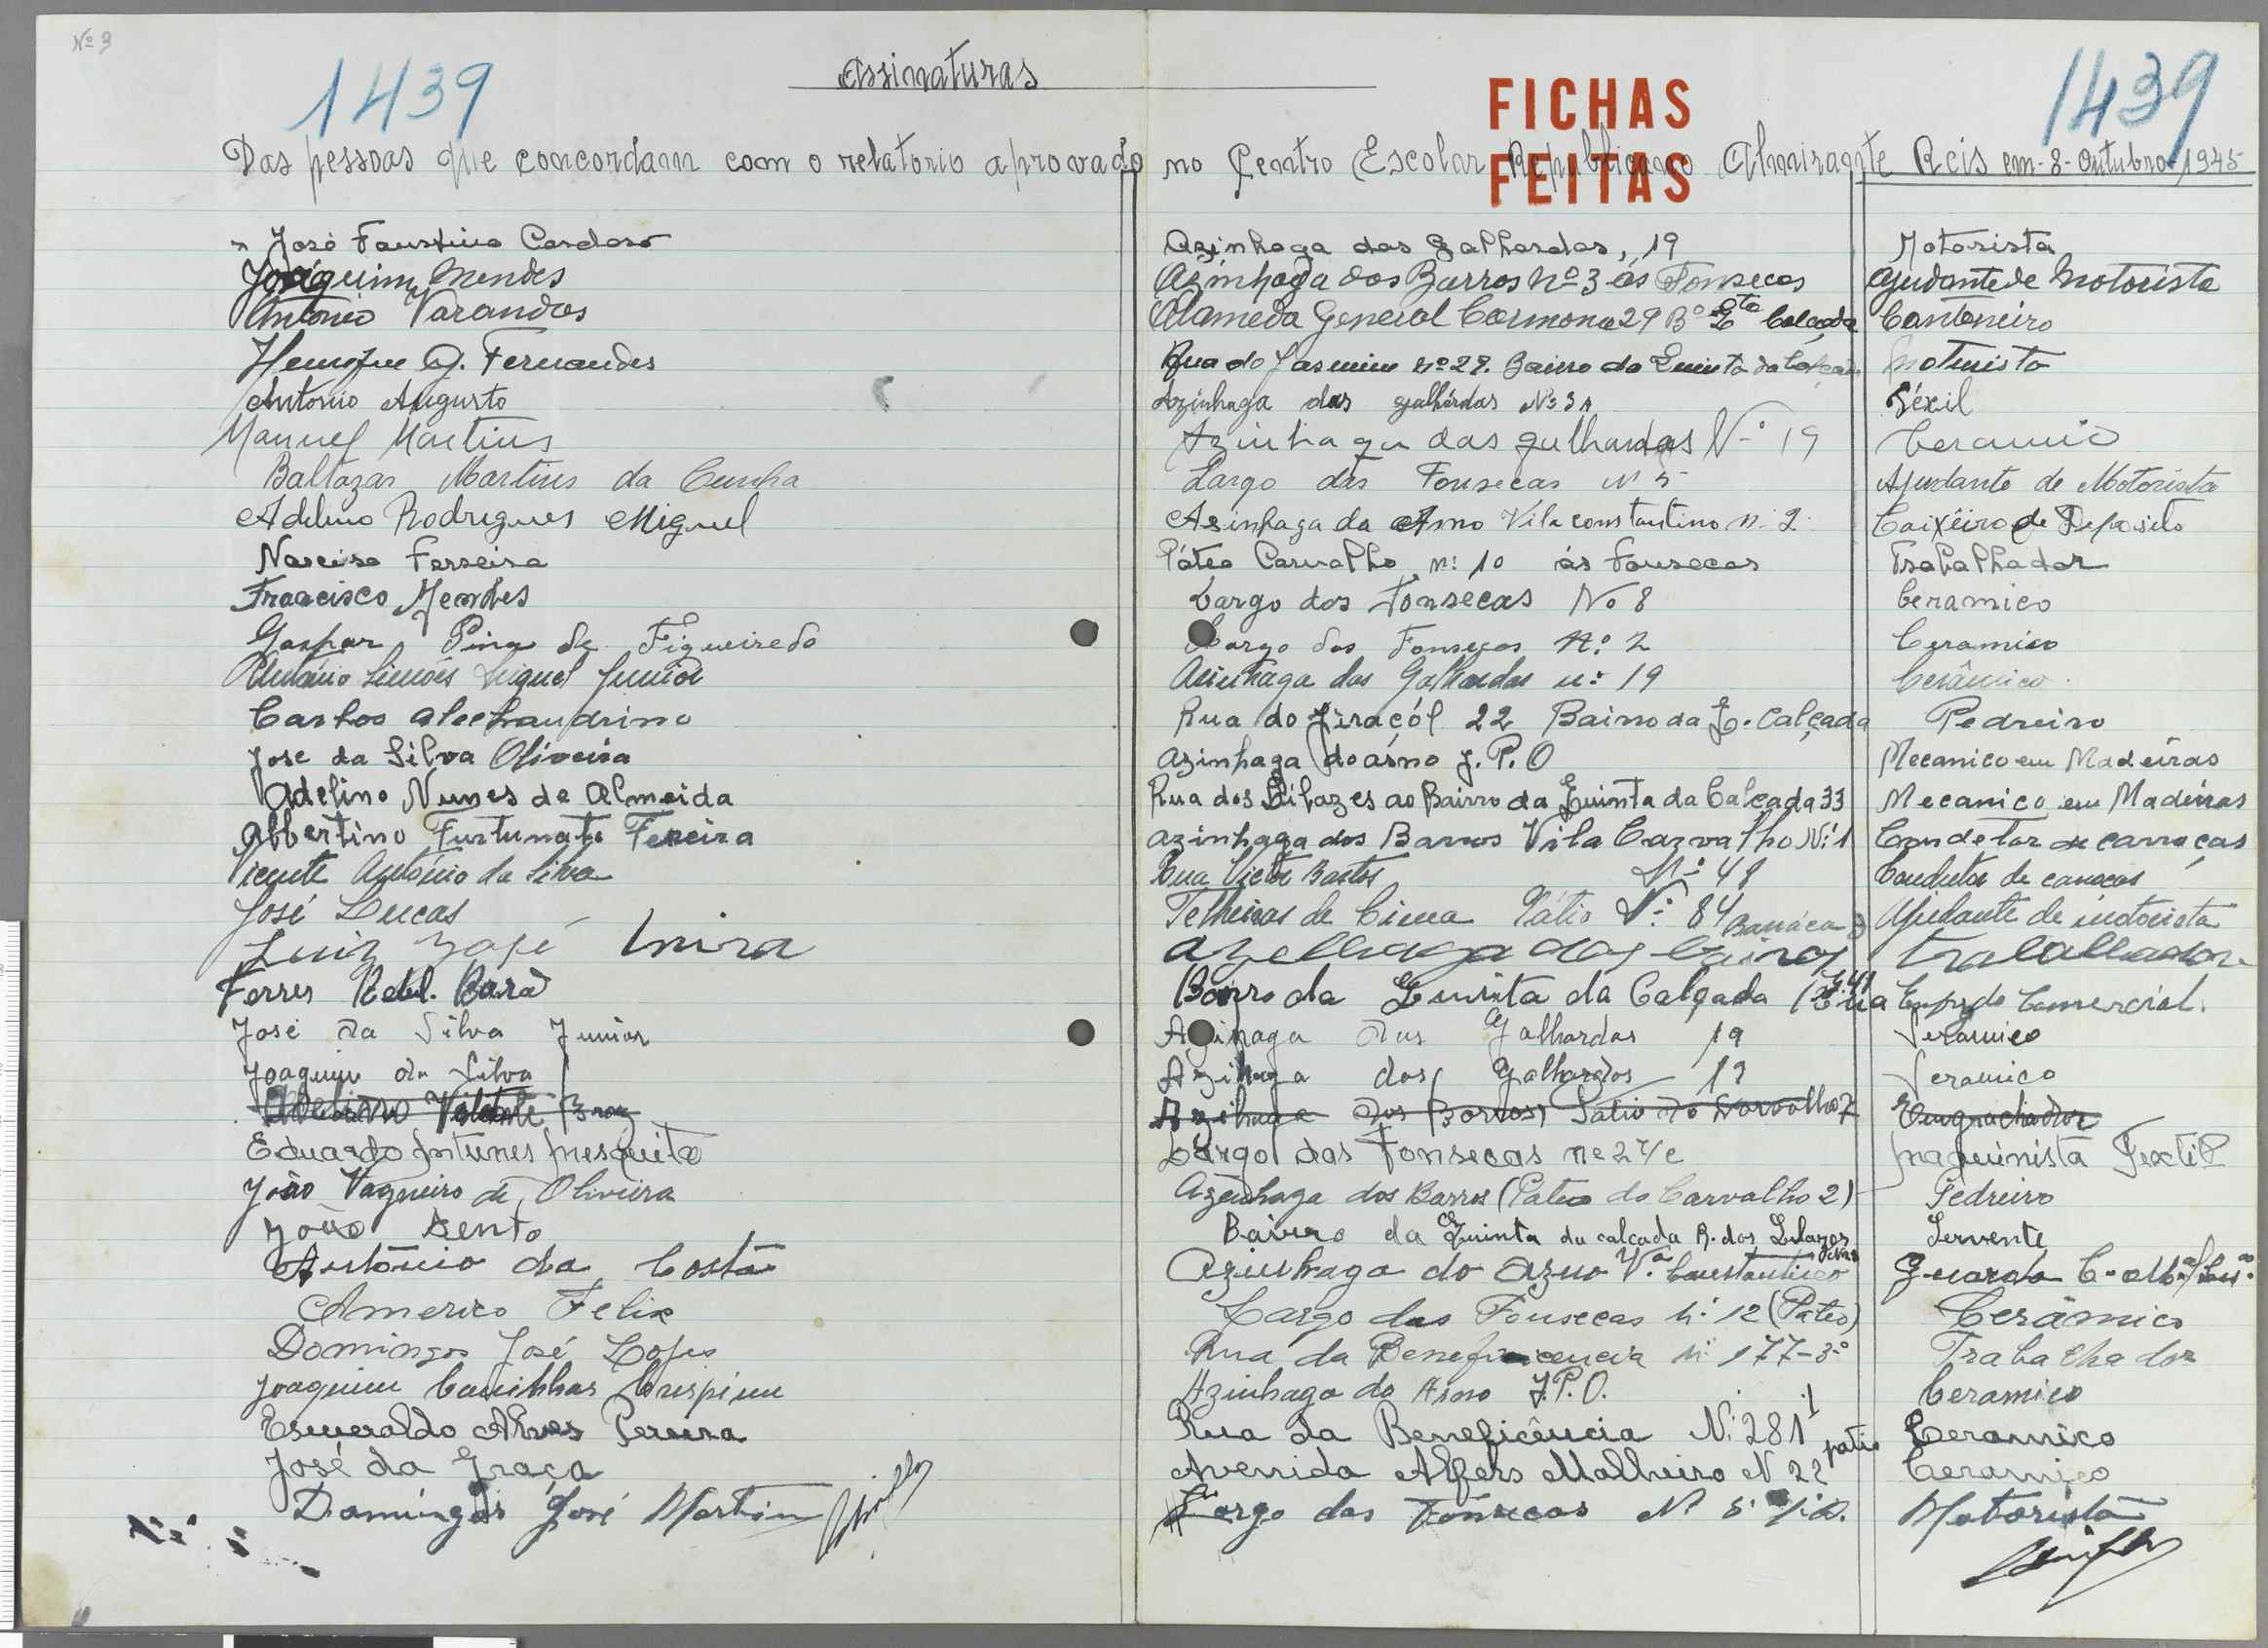 Nº 3
1439
Assinaturas
FICHAS
FEITAS
1439
Das pessoas que concordam com o relatorio aprovado no Centro Escolar Republicano Almirante Reis em-8-Outubro-1945
José Faustino Cardoso Azinhaga das Galhardas, 19 Motorista
Joaquim Mendes Azinhaga dos Barros Nº 3 ás Fonsecas Ajudante de Motorista
António Varandas Alameda General Carmona 29 Bº Qta Calçada Cantoneiro
Henrique G. Fernandes Rua do Jasmim nº 27. Bairro da Quinta da Calçada Motorista
António Augusto Azinhaga das galhárdas Nº 3A Téxil
Manuel Martins Azinhaga das galhardas N.º 19 Ceramic
Baltazar Martins da Cunha Largo das Fonsecas Nº 5 Ajudante de Motorista
Adelino Rodrigues Miguel Asinhaga da Asno Vila constantino n: 2 Caixêiro de Deposito
Narciso Ferreira Páteo Carvalho n: 10 ás Fonsecas Trabalhador
Francisco Mendes Largo dos Fonsecas Nº 8 Ceramico
Gaspar Pina de Figueiredo Largo das Fonsecas Nº 2 Ceramico
António Simões Miguel Junior Asinhaga das Galhardas nº 19 Cerâmico
Carlos Alechandrino Rua do Jiraçól 22 Bairro da Q. Calçada Pedreiro
José da Silva Oliveira Azinhaga do ásno J.P.O Mecanico em Madeiras
Adelino Nunes de Almeida Rua dos Lilazes ao Bairro da Quinta da Calçada 33 Mecanico em Madeiras
Albertino Furtunato Fereira azinhaga dos Barros Vila Carvalho Nº 1 Condetor de carroças
Vicente António da Silva Rua Victor Bastos Nº 48 Condutor de carroças
José Lucas Telheiras de Cima Pátio Nº 84 Barráca 3 Ajudante de motorista
Luiz José Mira trabalhador
Ferrer Bairro da Quinta da Calçada Empdo Comercial.
José da Silva Junior Azinhaga das Galhardas 19 Seramico
Joaquim da Silva Azinhaga das Galhardas 19 Seramico
Adelino Vicente Braz Azinhaga dos Barros, Patio do Carvalho 7 Engrachador
Eduardo Antunes Mesquita Largo das Fonsecas nº 2 r/c Maquinista Textil
João Vaqueiro de Oliveira Azinhaga dos Barros (Pateo do Carvalho 2) Pedreiro
João Bento Bairro da Quinta da calçada R. dos Lilazes Servente
António da Costa Azinhaga do Azno V.ª Constantino Guarda
Americo Felix Largo das Fonsecas nº 12 (Pateo) Cerâmico
Domingos José Lopes Rua da Beneficencia nº 177-3º Trabalhador
Joaquim Caninhas Crespim Azinhaga do Asno J.P.O. Ceramico
Esmeraldo Alves Pereira Rua da Beneficência Nº 281 1 patio Ceramico
José da Graça Avenida Alfers Malheiro N 22 Ceramico
Domingos José Martins Largo das Fonsecas Nº 5 Motorista